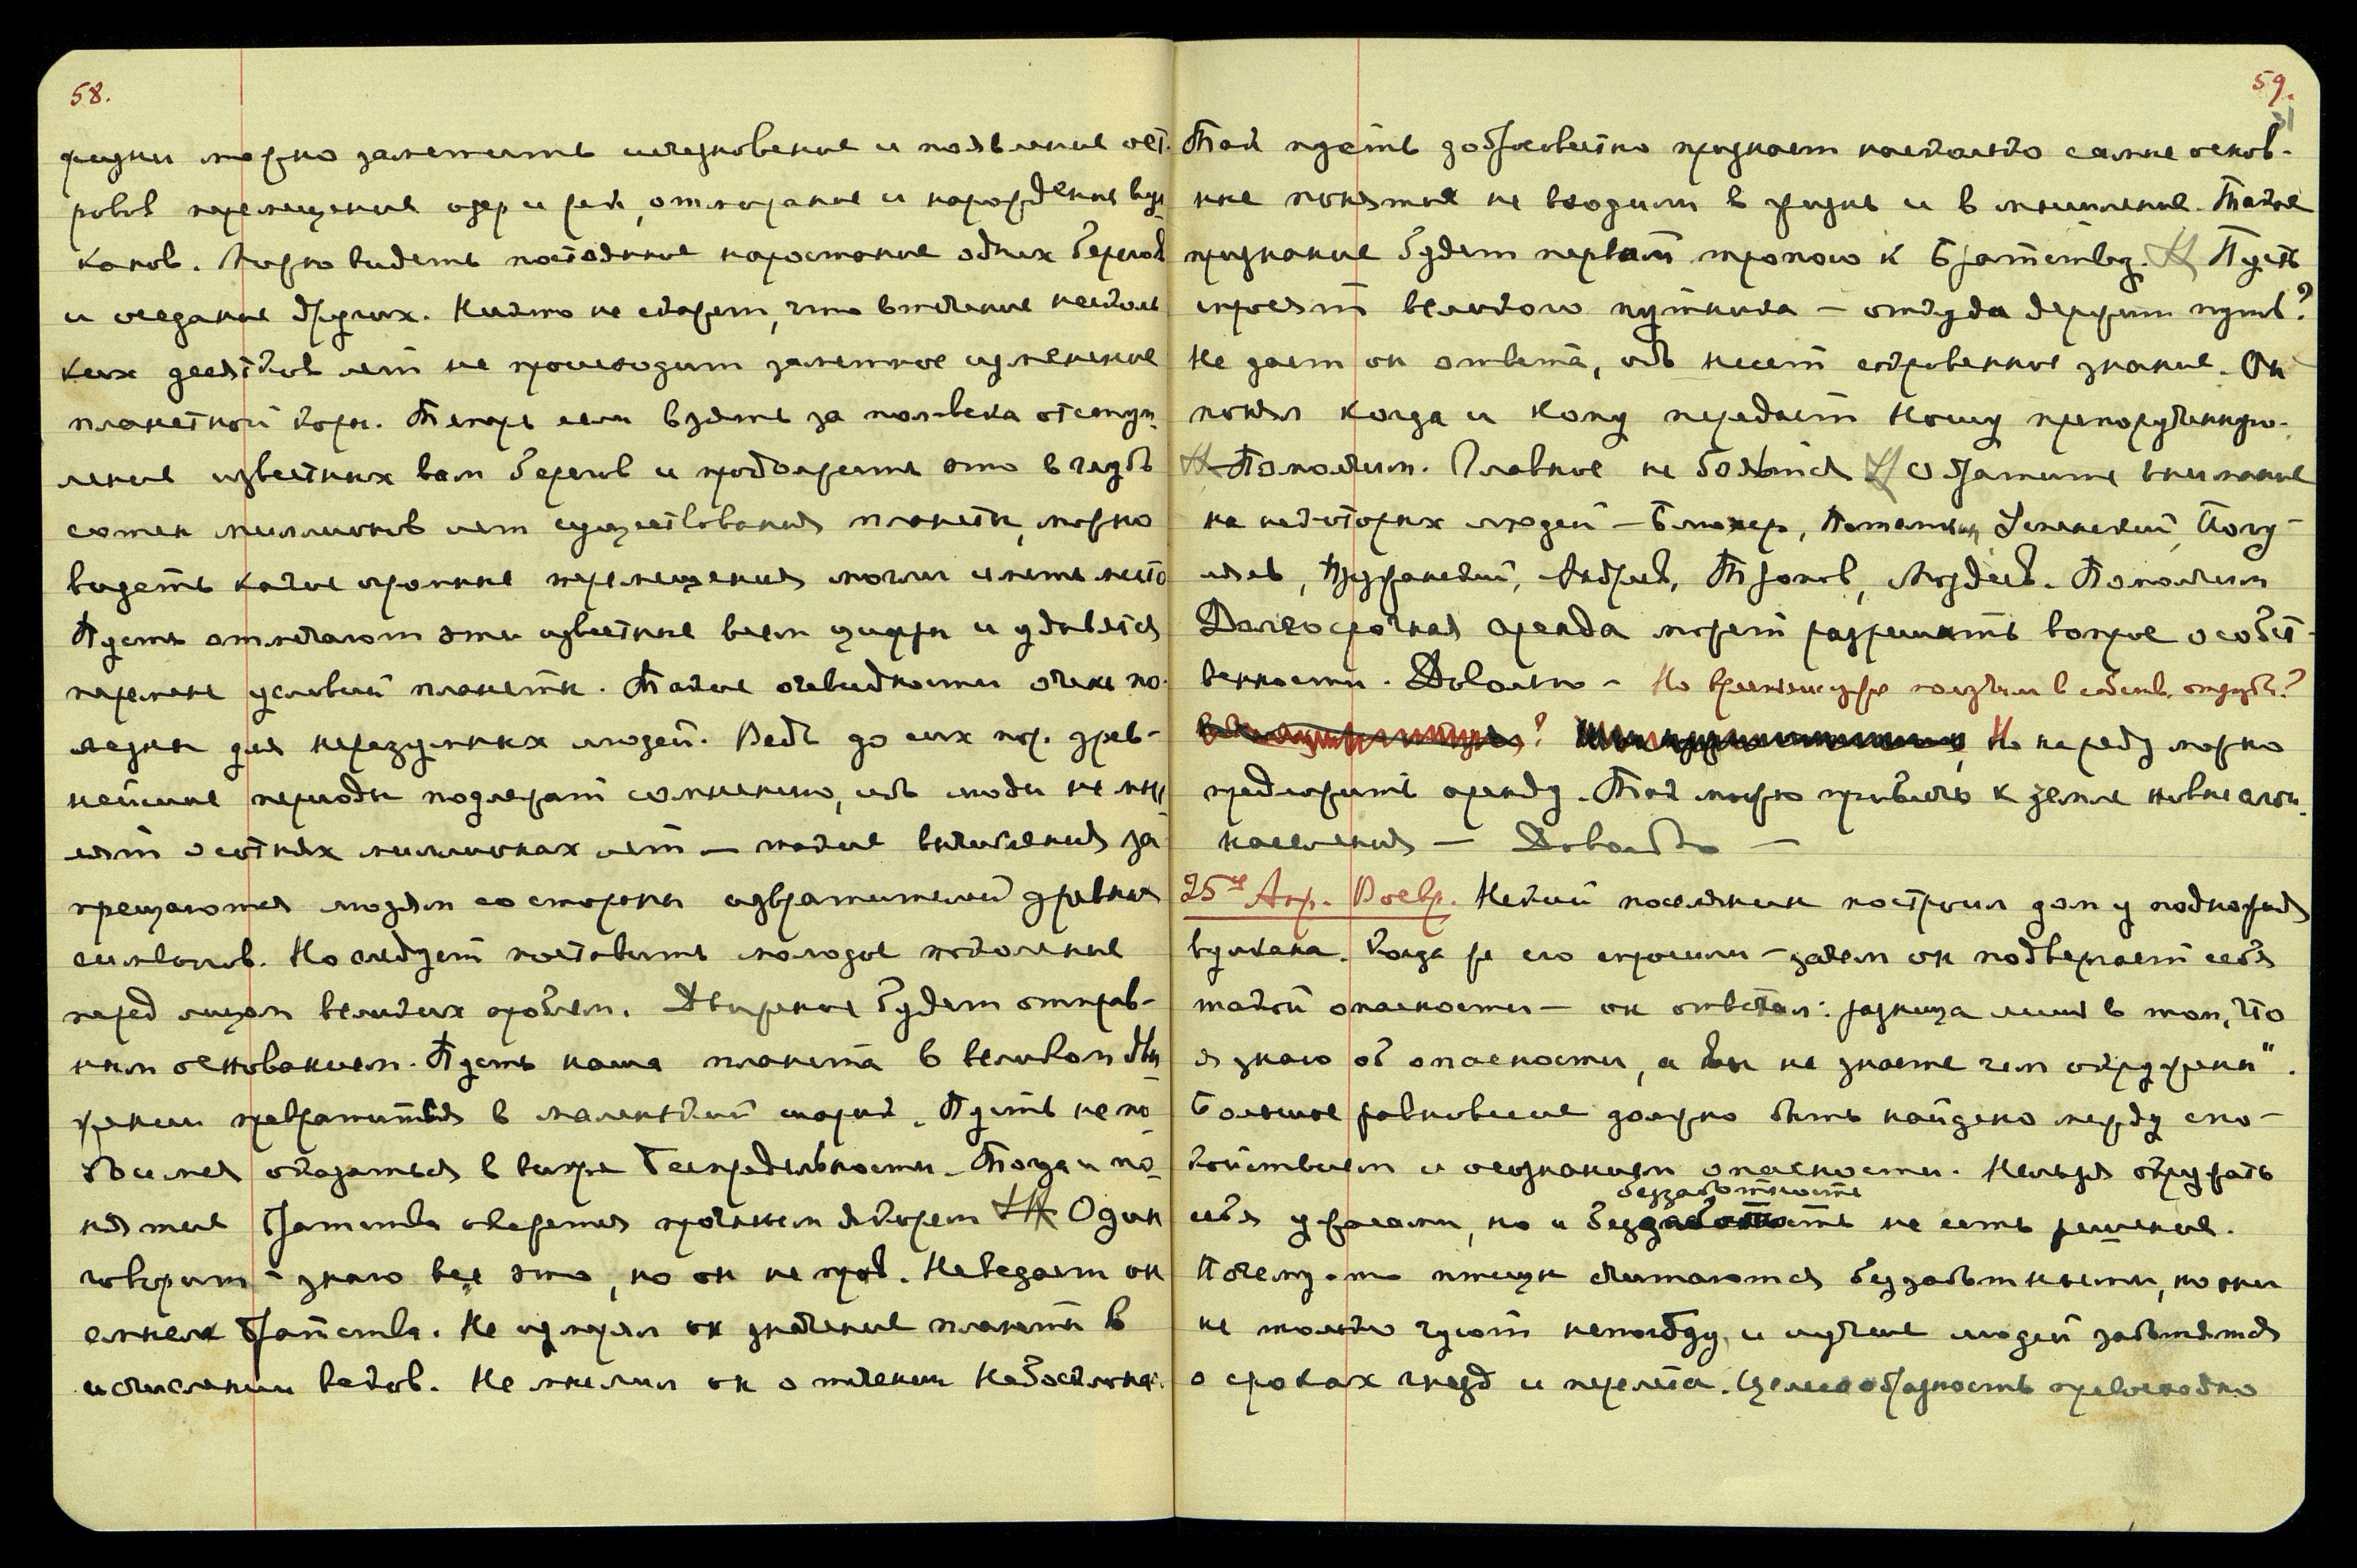 58.
жизни можно заметить исчезновение и появление ост-
ровов перемещение озер и рек, отмирание и нарождение вул-
канов. Можно видеть постоянное наростание одних берегов
и оседание других. Никто не скажет, что в течение несколь-
ких десятков лет не происходит заметное изменение
планетной коры. Теперь если взять за полвека отступ-
ление известных вам берегов и продолжить это вглубь
сотен миллионов лет существования планеты, можно
видеть какие огромные перемещения могли иметь место
Пусть отмечают эти известные всем цифры и удивятся
перемене условий планеты. Такие очевидности очень по-
лезны для неразумных людей. Ведь до сих пор древ-
нейшие периоды подлежат сомнению, ибо люди не мыс-
лят о сотнях миллионах лет — такие вычисления за-
прещаются людям со стороны извратителей древних
символов. Но следует поставить молодое поколение
перед лицом великих проблем. Движение будет отправ-
ным основанием. Пусть наша планета в великом дви-
жении превратится в маленький шарик. Пусть не по-
боимся оказаться в вихре Беспредельности. Тогда и по-
нятие Братства окажется прочным якорем Один
говорит — знаю все это, но он не прав. Не ведает он
смысла Братства. Не измерял он значение планеты в
исчислении веков. Не мыслил он о течении Небосклона.
59.
Так пусть добросовестно признает насколько самые основ-
ные понятия не входили в жизнь и в мышление. Такое
признание будет первой тропою к Братству. Пусть
спросят великого путника — откуда держит путь?
Не дает он ответа, ибо несет сокровенное знание. Он
понял когда и кому передаст ношу препорученную.
Помолчим. Главное не бояться Обратите внимание
на некоторых людей — Блюхер, Потемкин, Успенский, Погу-
ляев, Андреев, Трохов, Помолчим
Долгосрочная аренда может разрешить вопрос о собст-
венности. Довольно — Но
? Но между можно
предложить аренду. Так можно привлечь к земле новые слои
населения — Довольно —
25е Апр. Воскр. Некий поселянин построил дом у подножия
вулкана. Когда же его спросили — зачем он подвергает себя
такой опасности — он ответил: разница лишь в том, что
я знаю об опасности, а вы не знаете чем окружены".
Большое равновесие должно быть найдено между спо-
койствием и осознанием опасности. Нельзя окружать
беззаботность
себя ужасами, но и не есть решение.
Почему-то птицы считаются беззаботными, но они
не только чуют непогоду, и лучше людей заботятся
о сроках гнезд и перелета. Целесообразность превосходно